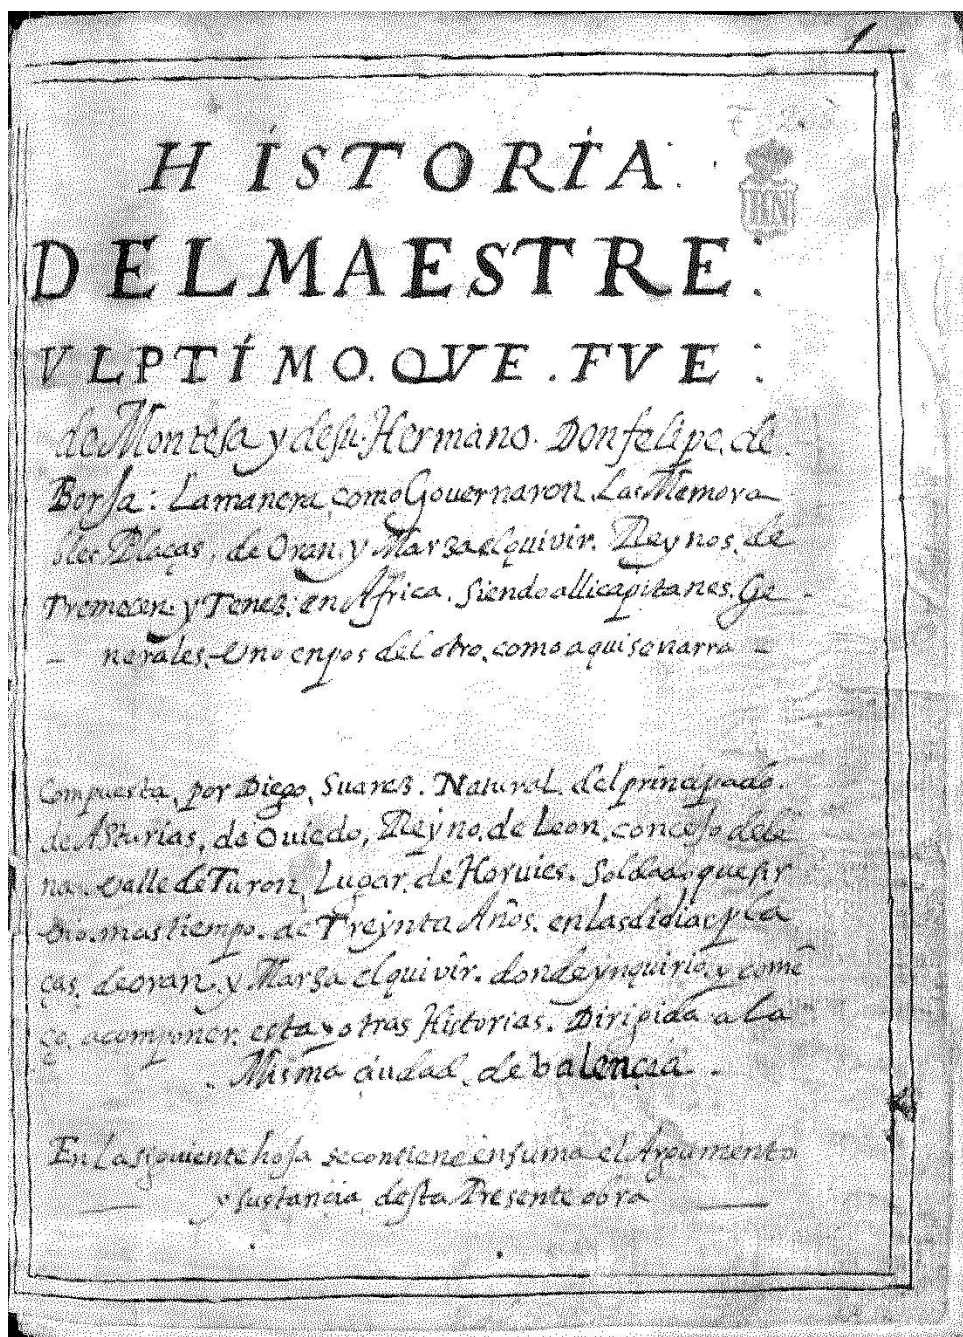 1
HISTORIA.
DEL MAESTRE:
VLPTIMO. QVE. FVE:
de Montesa y de su Hermano. Don felipe. de.
Borja: La manera, como Governaron. Las Memora
bles Plaças. de Oran. y Marzaelquivir. Reynos. de
Tremecen. y Tenez. en Africa. siendo alli capitanes. Ge-
- nerales. Uno enpos del otro. como aqui se narra =
Compuesta, por Diego, Suarez. Natural. del principado.
de Asturias, de Oviedo, Reyno. de Leon. concejo de le
na. valle de Turon, Lugar. de Horvies. Soldado que sir
vio. mas tiempo. de Treynta Años. en las dichas pla
ças. de oran. y Marza elquivir. donde ynquirio. y comē
ço. a componer. esta y otras Historias. Dirigida a la
. Misma ciudad. de valencia.
En la siguiente hoja se contiene en suma el Argumento
y sustancia desta Presente obra
BN